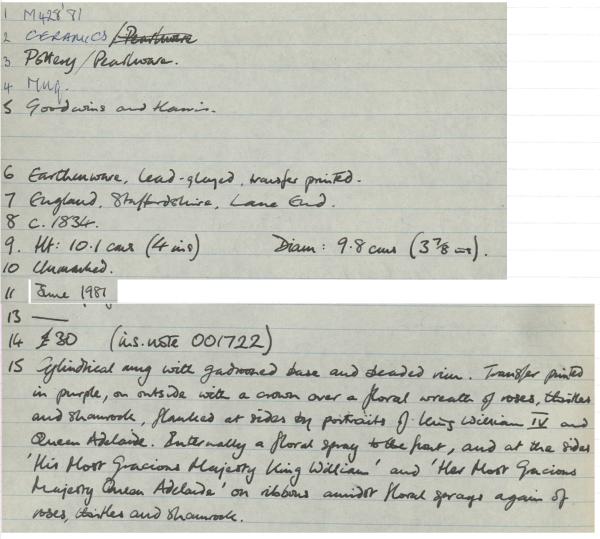 1 M428'81
2 CERAMICS/Pearlware
3 Pottery/Pearlware.
4 Mug.
5 Goodwins and Harris.
6 Earthenware, lead-glazed, transfer printed.
7 England, Staffordshire, Lane End.
8 c. 1834.
9. Ht: 10.1 cms (4 ins) Diam: 9.8 cms (3 7/8 ins).
10 Unmarked.
11 June 1981
13 —
14 £30 (ins. note 001722)
15 Cylindrical mug with gadrooned base and beaded rim. Transfer printed
in purple, on outside with a crown over a floral wreath of roses, thistles
and shamrock, flanked at sides by portraits of King William IV and
Queen Adelaide. Internally a floral spray to the front, and at the sides
'His Most Gracious Majesty King William' and 'Her Most Gracious
Majesty Queen Adelaide' on ribbons amidst floral sprays again of
roses, thistles and shamrock.